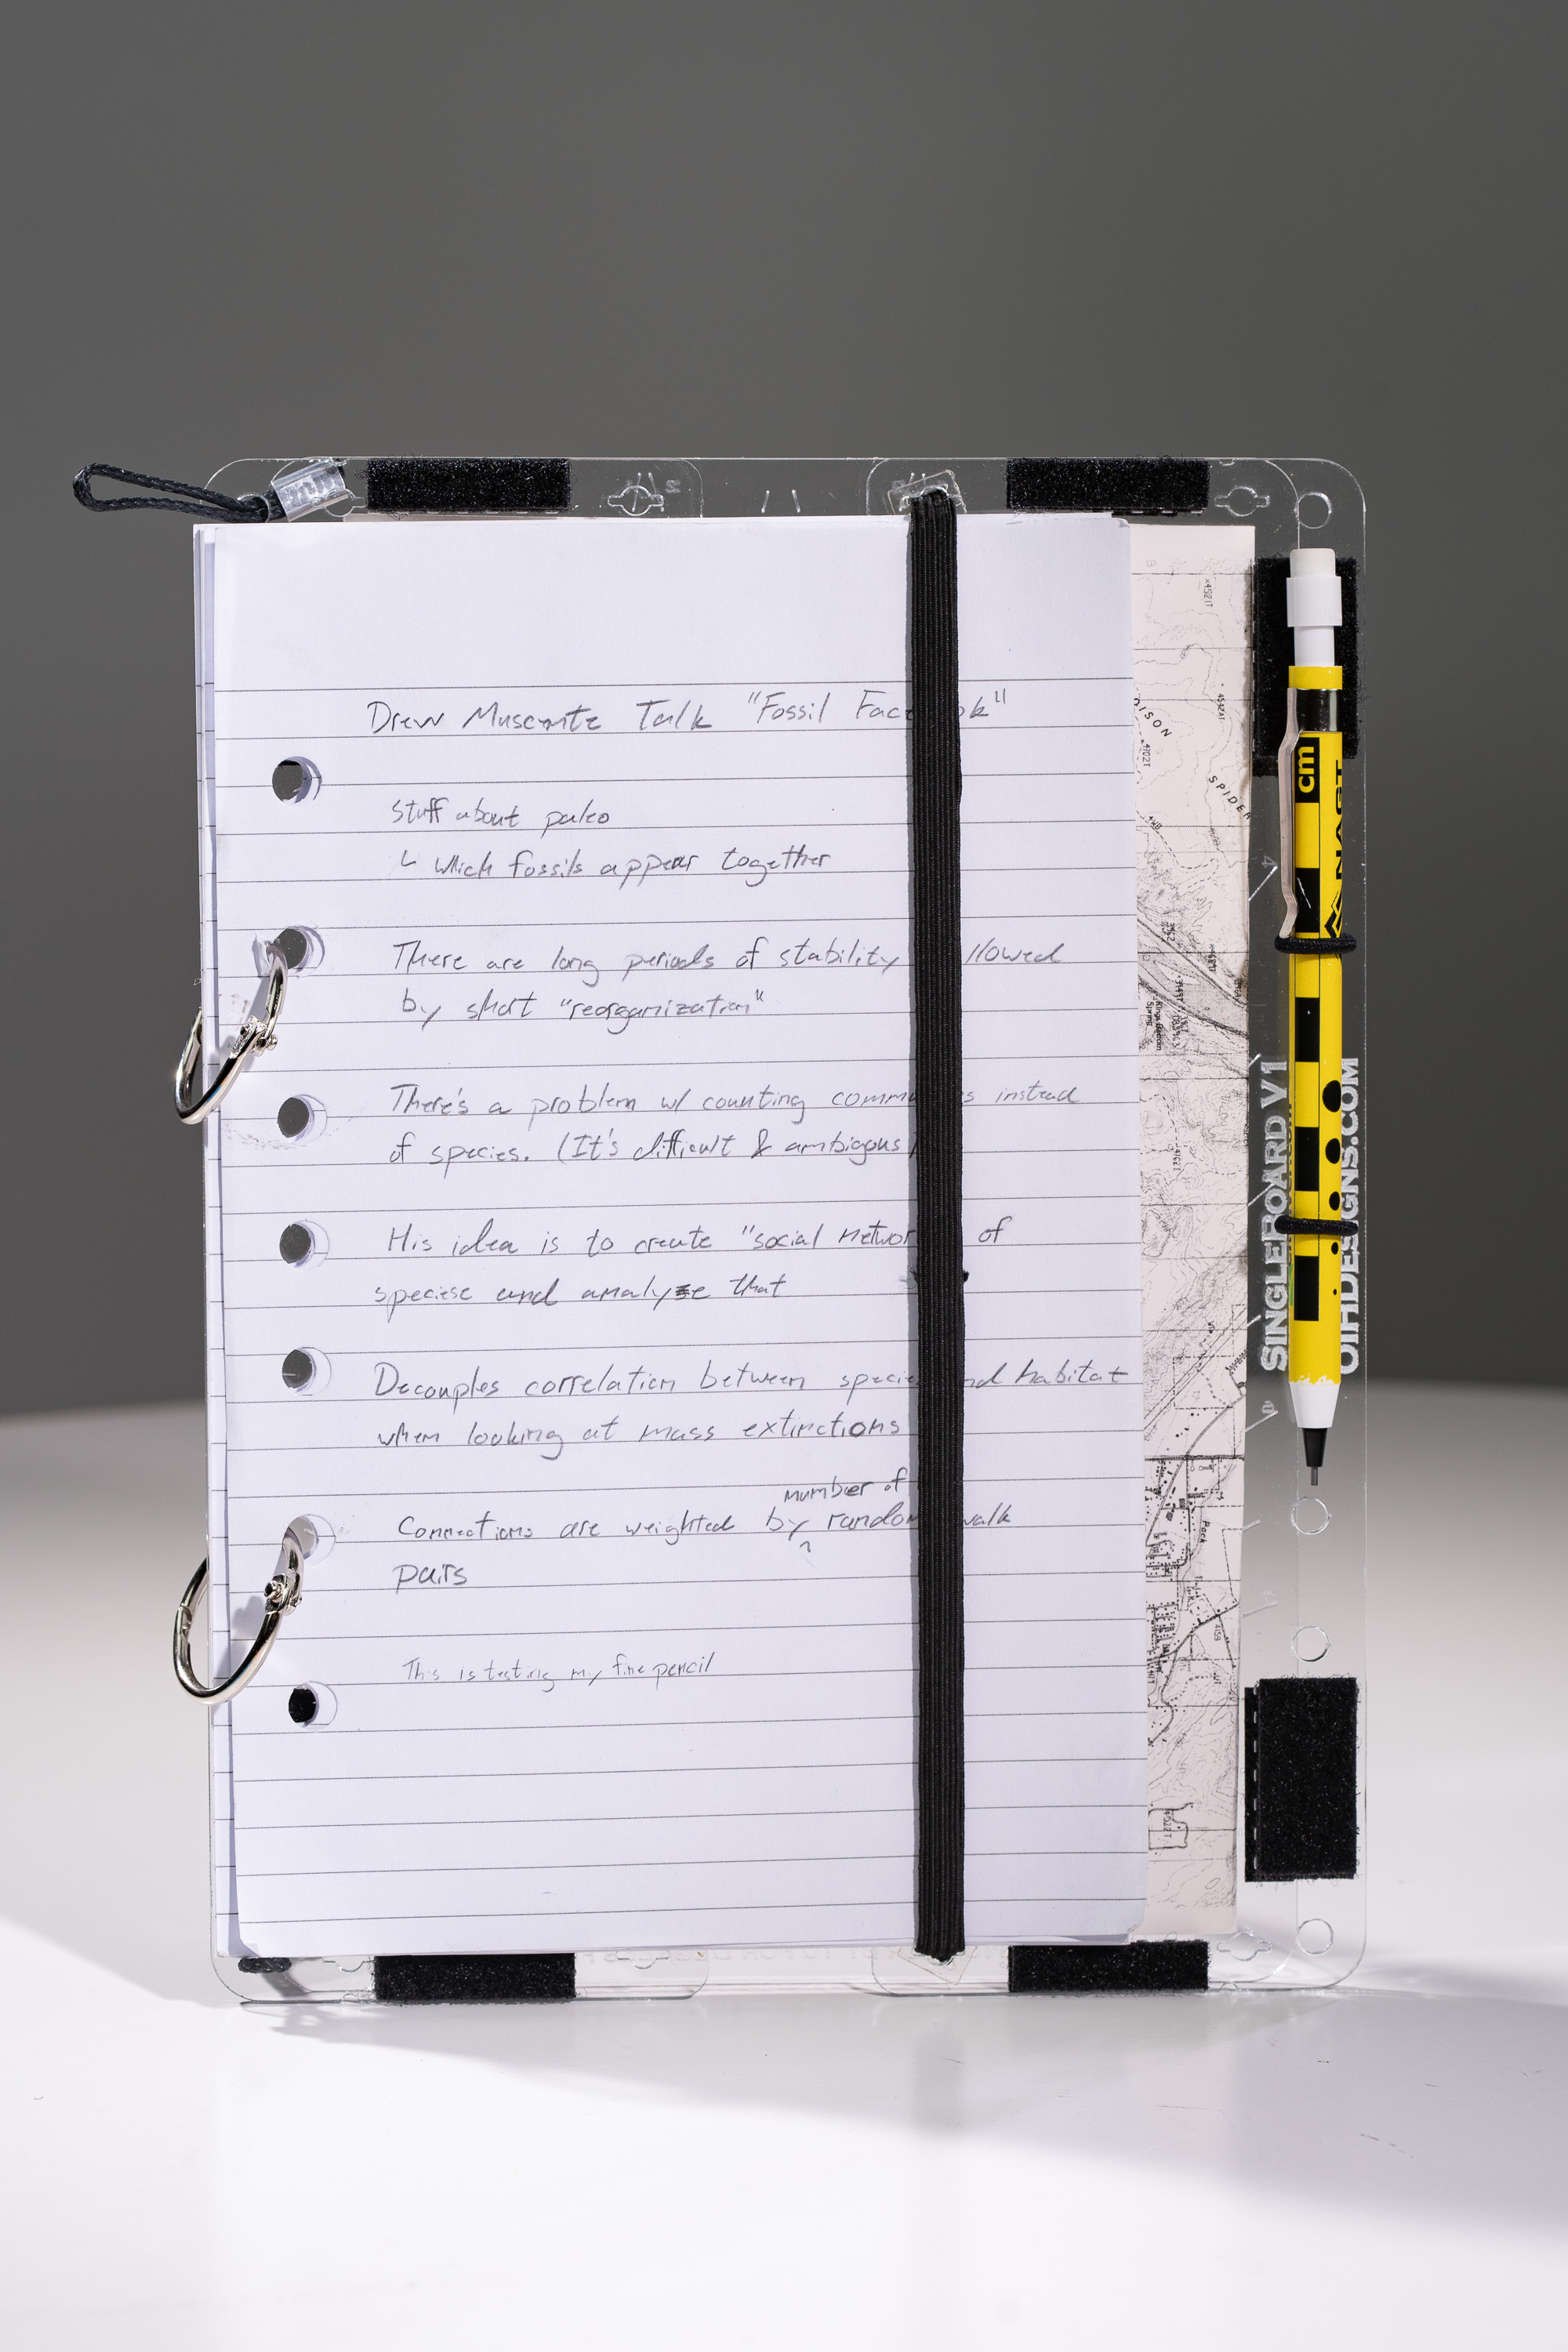 Drew Muscente Talk "Fossil Fac ok"
stuff about paleo
↳ which fossils appear together
There are long periods of stability llowed
by short "reorganization"
There's a problem w/ counting commu s instead
of species. (It's difficult & ambigous)
His idea is to create "social networ of
speciese and analyze that
Decouples correlation between specie nd habitat
when looking at mass extinctions
number of
Connections are weighted by ^ random walk
pairs
This is testing my fine pencil
cm
NAST
SINGLEBOARD V1
OIHDESIGNS.COM
SPIDER
Rock